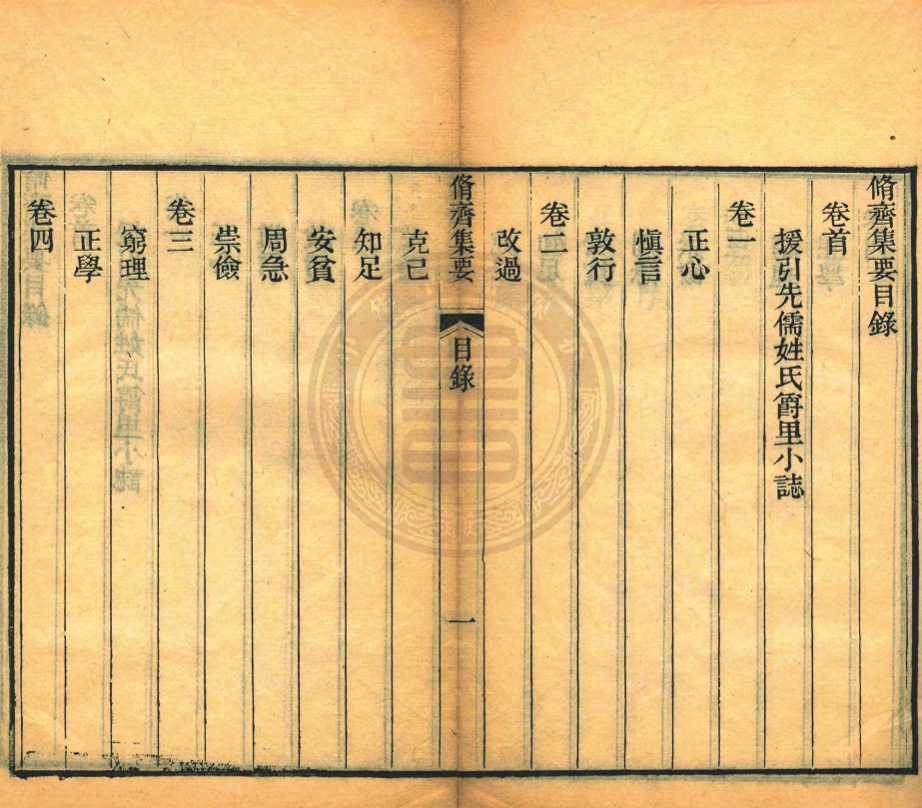 脩齊集要目錄
卷首
援引先儒姓氏爵里小誌
卷一
正心
愼言
敦行
卷二
改過
脩齊集要
目錄
一
克己
知足
安貧
周急
崇儉
卷三
窮理
正學
卷四